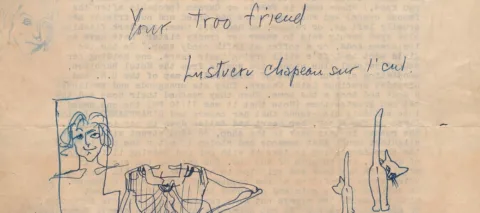 Your troo friend
Lustucru chapeau sur l'cul